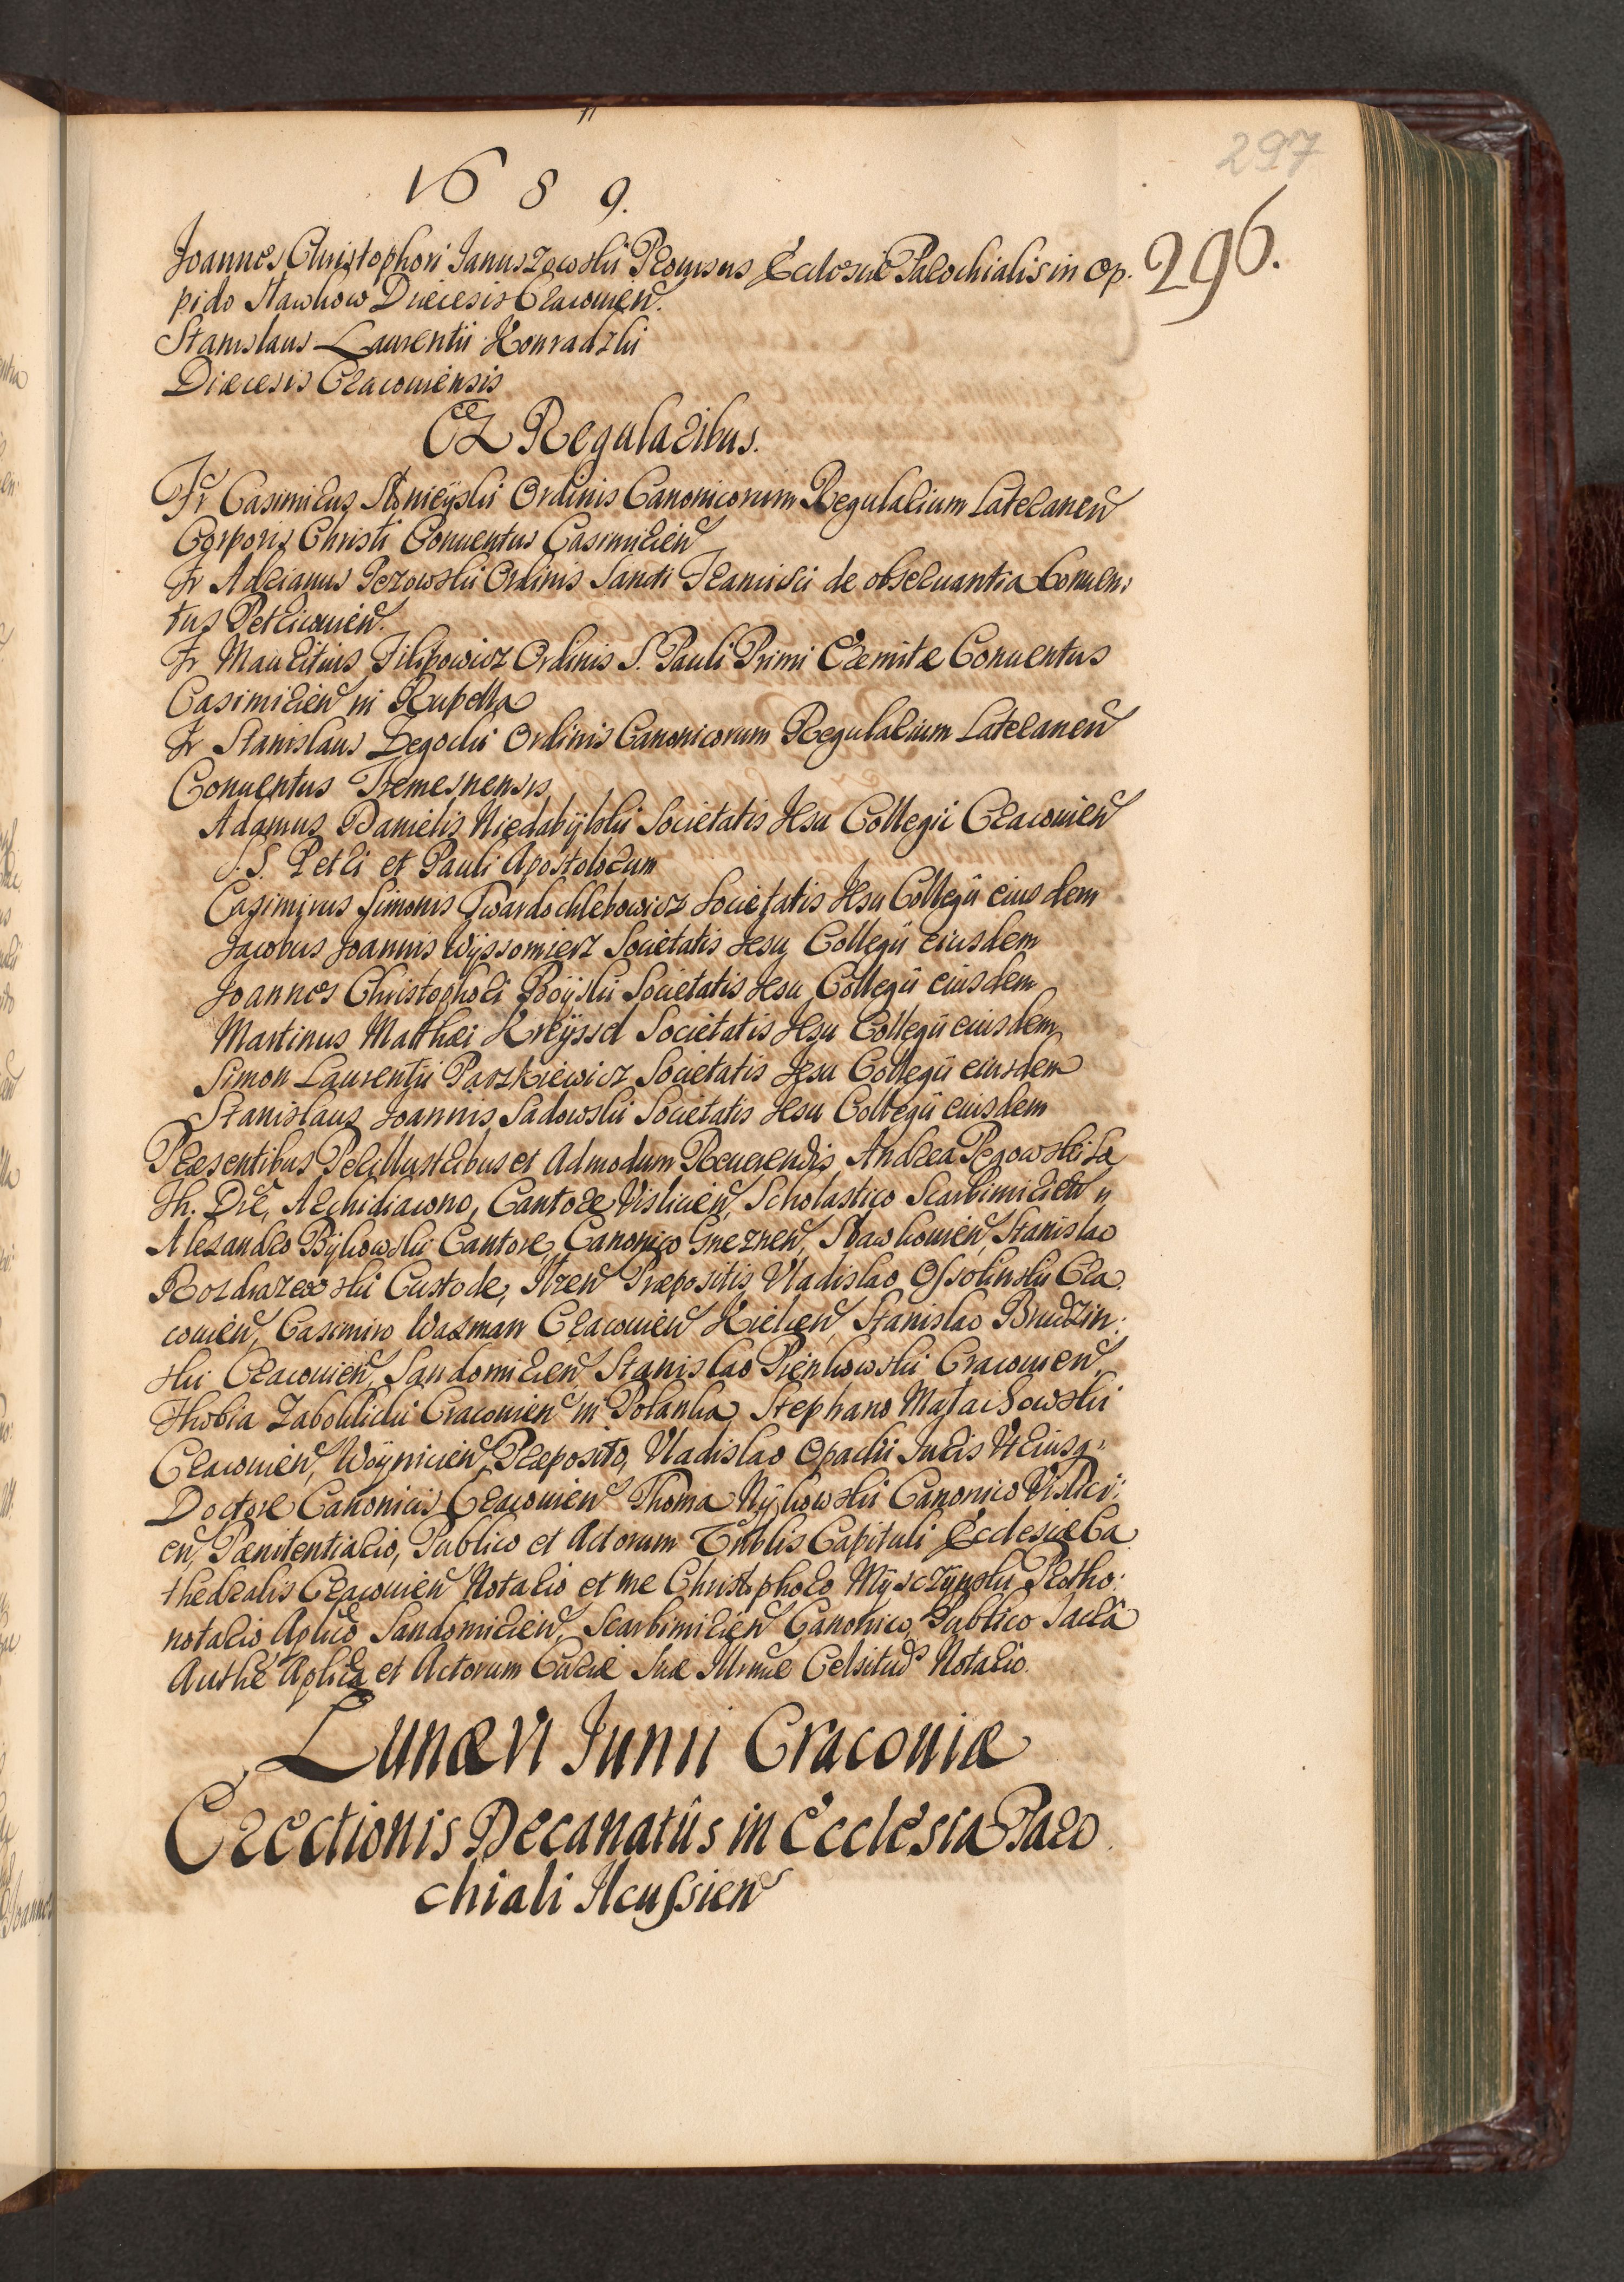 297
1689.
296.
Joannes Christophori Januszowski Prouisus Ecclesiæ Parochialis in Op:
pido Sławkow Diæcesis Cracouień.
Stanislaus Laurentii Konradzki
Diæcesis Cracouiensis
Ex Regularibus.
Fr Casimirus Ordinis Canonicorum Regularium Lateraneń
Corporis Christi Conuentus Casimirień
Fr Adrianus Jezowski Ordinis Sancti Francisci de obseruantia Conuen:
tus Petricouień.
Fr Mauritius Filipowicz Ordinis S. Pauli Primi Eremitæ Conuentus
Casimirień in Rupella
Fr Stanislaus Degocki Ordinis Canonicorum Regularium Lateraneń
Conuentus Tremesnensis
Adamus Danielis Niedabÿlski Societatis Jesu Collegii Cracouień
S.S. Petri et Pauli Apostolorum
Casimirus Simonis Twardochlebowicz Societatis Jesu Collegii eiusdem
Jacobus Joannis Wÿssomierz Societatis Jesu Collegii eiusdem
Joannes Christophori Boÿski Societatis Jesu Collegii eiusdem
Martinus Matthæi Kreÿssel Societatis Jesu Collegii eiusdem
Simon Laurentii Paszkiewicz Societatis Jesu Collegii eiusdem
Stanislaus Joannis Sadowski Societatis Jesu Collegii eiusdem
Præsentibus Perillustribus et Admodum Reuerendis Andrea Pegowski Sa
Th. Dre, Archidiacono, Cantore Vislicień, Scholastico Scarbimirień
Alexandro Bÿkowski Cantore, Canonico Gnezneń, Sławkouień, Stanislao
Rozdrazewski Custode, Præpositis Vladislao Ossolinski Cra
couień, Casimiro Wazman Cracouień Kielceń, Stanislao Brudzin:
ski Cracouień, Sandomirień Stanislao Pienkowski Cracouień,
Thobia Zaboklicki Cracouień in Polanka, Stephano Matachowski
Cracouień, Woÿnicień Præposito, Vladislao Opacki Juris Vtriusq;
Doctore Canonicis Cracouień Thoma Nÿkowski Canonico Vislici:
eń, Pænitentiario, Publico et Actorum Capituli Ecclesiæ Ca
thedralis Cracouień Notario et me Christophoro Mÿsczÿnski Protho:
notario Aplico Sandomirień, Scarbimirień Canonico, Publico Sacra
Authe Aplica et Actorum Curiæ Suæ Illrmæ Celsitudis Notario.
Lunæ VI Junii Cracouiæ
Erectionis Decanatûs in Ecclesia Paro
chiali Ilcussień